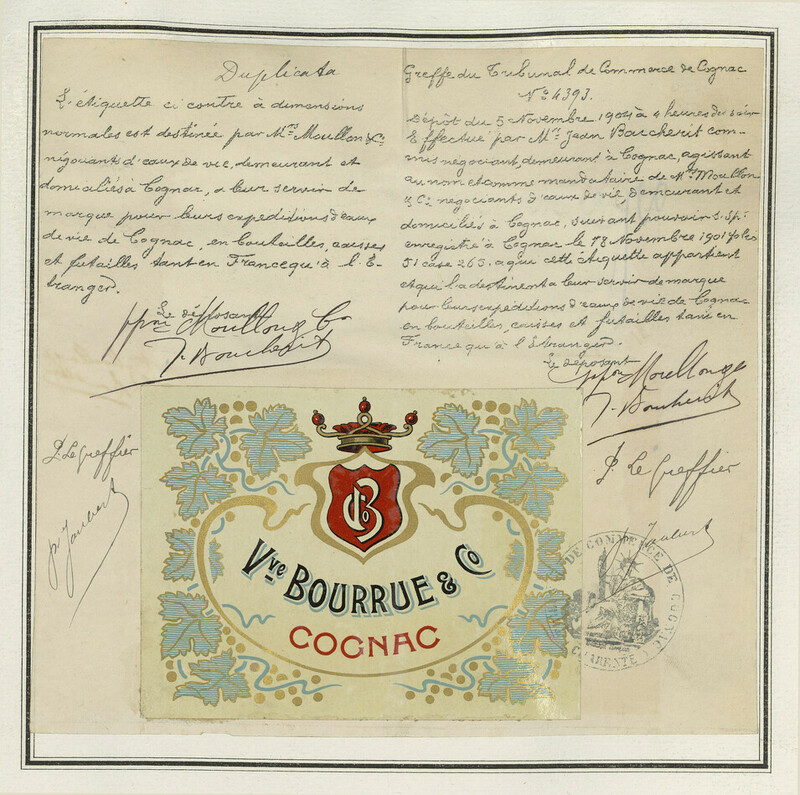 Duplicata
L'étiquette ci contre à dimensions
normales est destinée par Mrs Moullon & Cie
négociants d'eaux de vie, demeurant et
domiciliés à Cognac, a leur servir de
marque pour leurs expéditions d'eaux
de vie de Cognac, en bouteilles, caisses
et futailles tant en France qu'à l'E-
tranger.
Le déposant
Moullon & Co
J. Boucherit
P. Le Greffier
Jaubert
Greffe du Tribunal de Commerce de Cognac
No 4393.
Dépôt du 5 Novembre à 4 heures du soir
Effectué par Mr Jean com-
mis négociant, demeurant à Cognac, agissant
au nom et comme mandataire de Mrs Moullon
& Cie négociants d'eaux de vie, demeurant et
domiciliés à Cognac, suivant pouvoir s. sp.
enregistré à Cognac le Novembre 1901 folio
51 case 263. a qui cette étiquette appartient
et qui la destinent a leur servir de marque
pour leurs expéditions d'eaux de vie de Cognac
en bouteilles, caisses et futailles tant en
France qu'à l'Etranger.
Le déposant
Moullon & Co
J. Boucherit
P. Le Greffier
Jaubert
CB
Vve BOURRUE & Co
COGNAC
DE COMMERCE DE COGNAC
CHARENTE